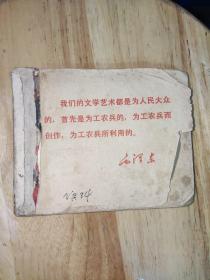 我们的文学艺术都是为人民大众
的，首先是为工农兵的，为工农兵而
创作，为工农兵所利用的。
毛泽东